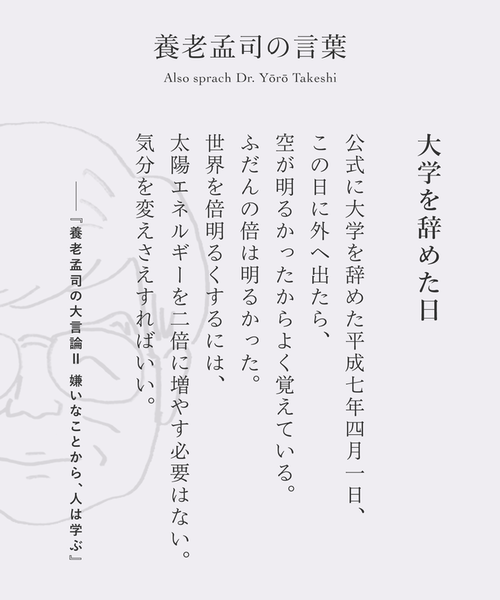 養老孟司の言葉
Also sprach Dr. Yōrō Takeshi
大学を辞めた日
公式に大学を辞めた平成七年四月一日、
この日に外へ出たら、
空が明るかったからよく覚えている。
ふだんの倍は明るかった。
世界を倍明るくするには、
太陽エネルギーを二倍に増やす必要はない。
気分を変えさえすればいい。
──『養老孟司の大言論Ⅱ 嫌いなことから、人は学ぶ』